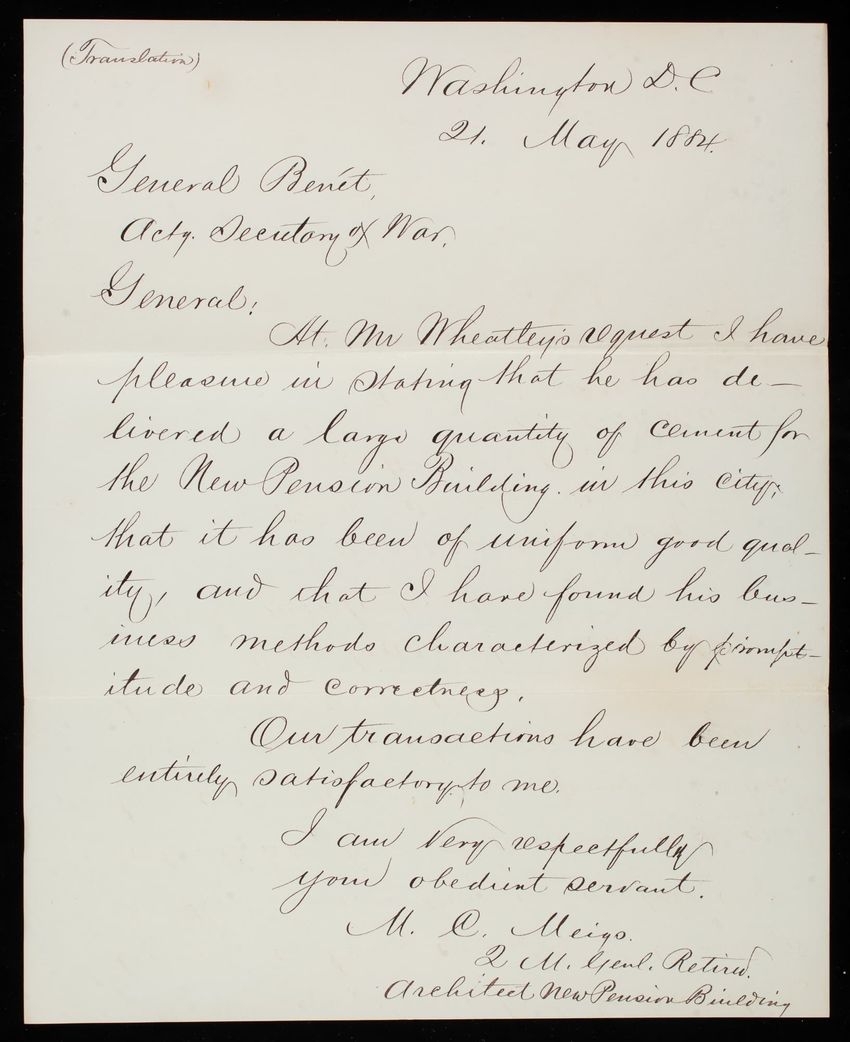 (Translation)
Washington D. C
21. May 1884.
General Benét,
Actg. Secretary of War,
General:
At Mr Wheatley's request I have
pleasure in stating that he has de-
livered a large quantity of cement for
the New Pension Building in this city;
that it has been of uniform good qual-
ity, and that I have found his bus-
iness methods characterized by prompt-
itude and correctness.
Our transactions have been
entirely satisfactory to me.
I am Very respectfully
your obedient servant.
M. C. Meigs.
Q M. Genl. Retired.
Architect New Pension Building